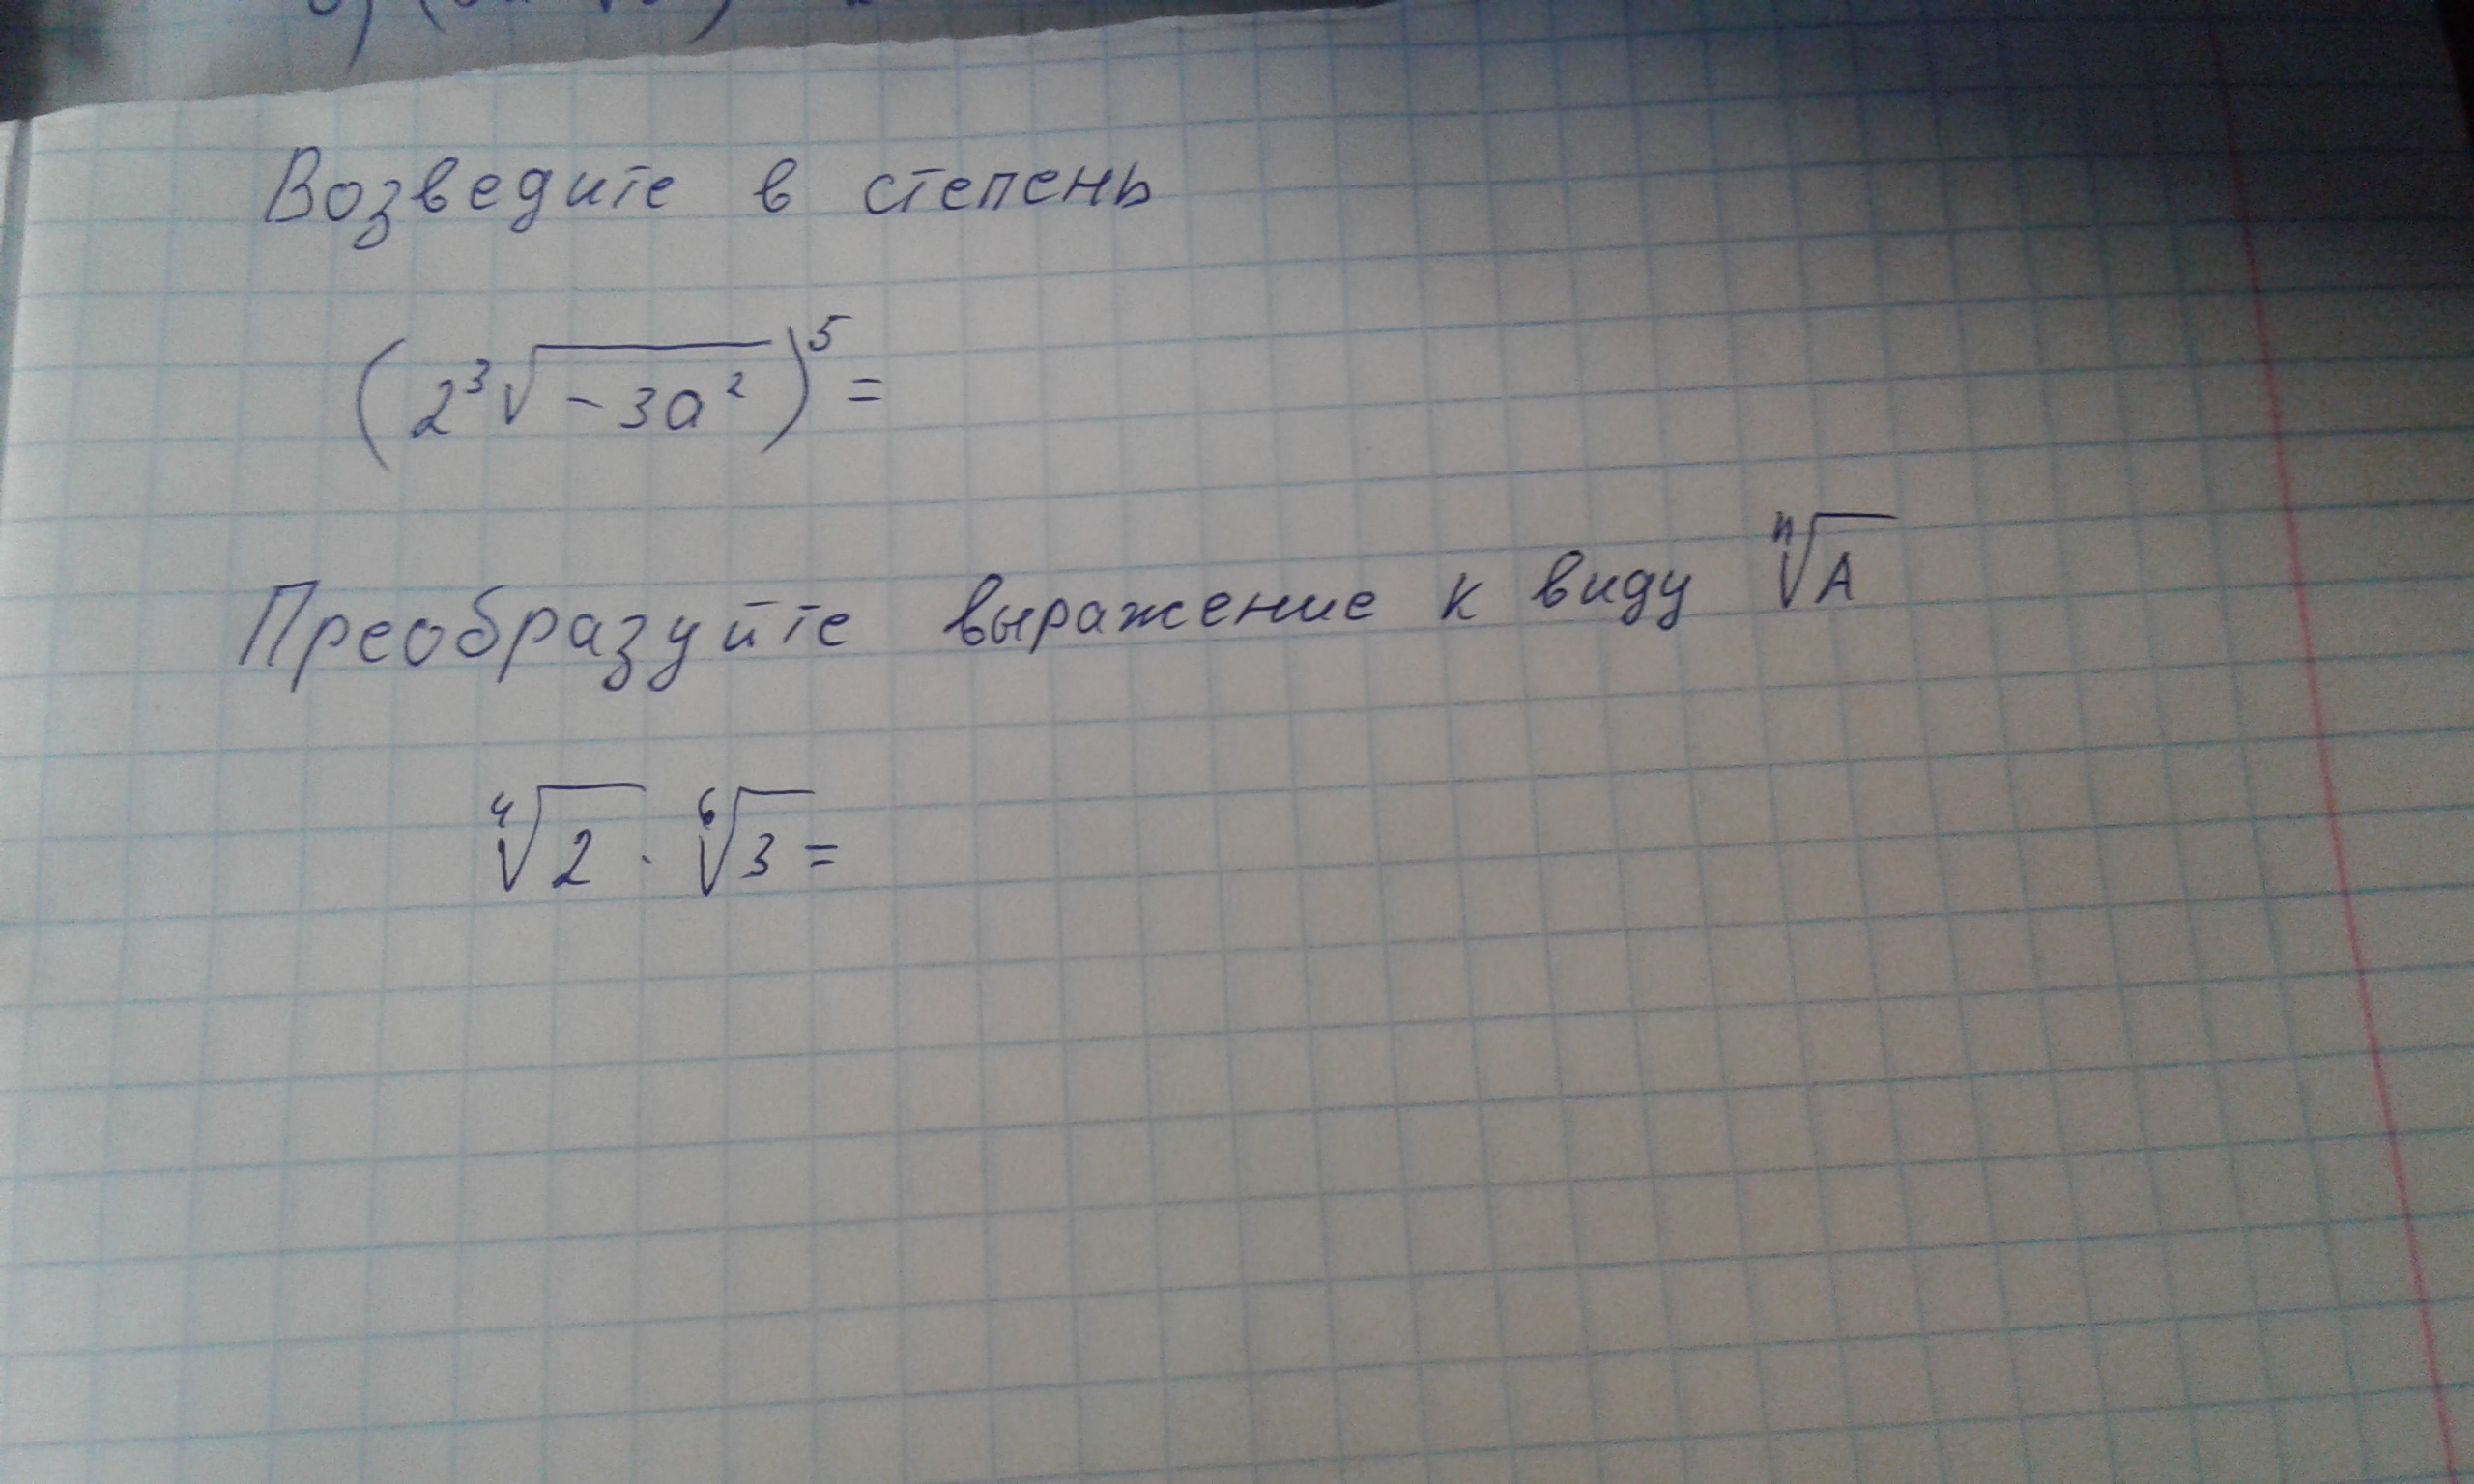 Возведите в степень
(2³√-3a²)⁵=
Преобразуйте выражение к виду ⁿ√A
⁴√2 · ⁶√3=